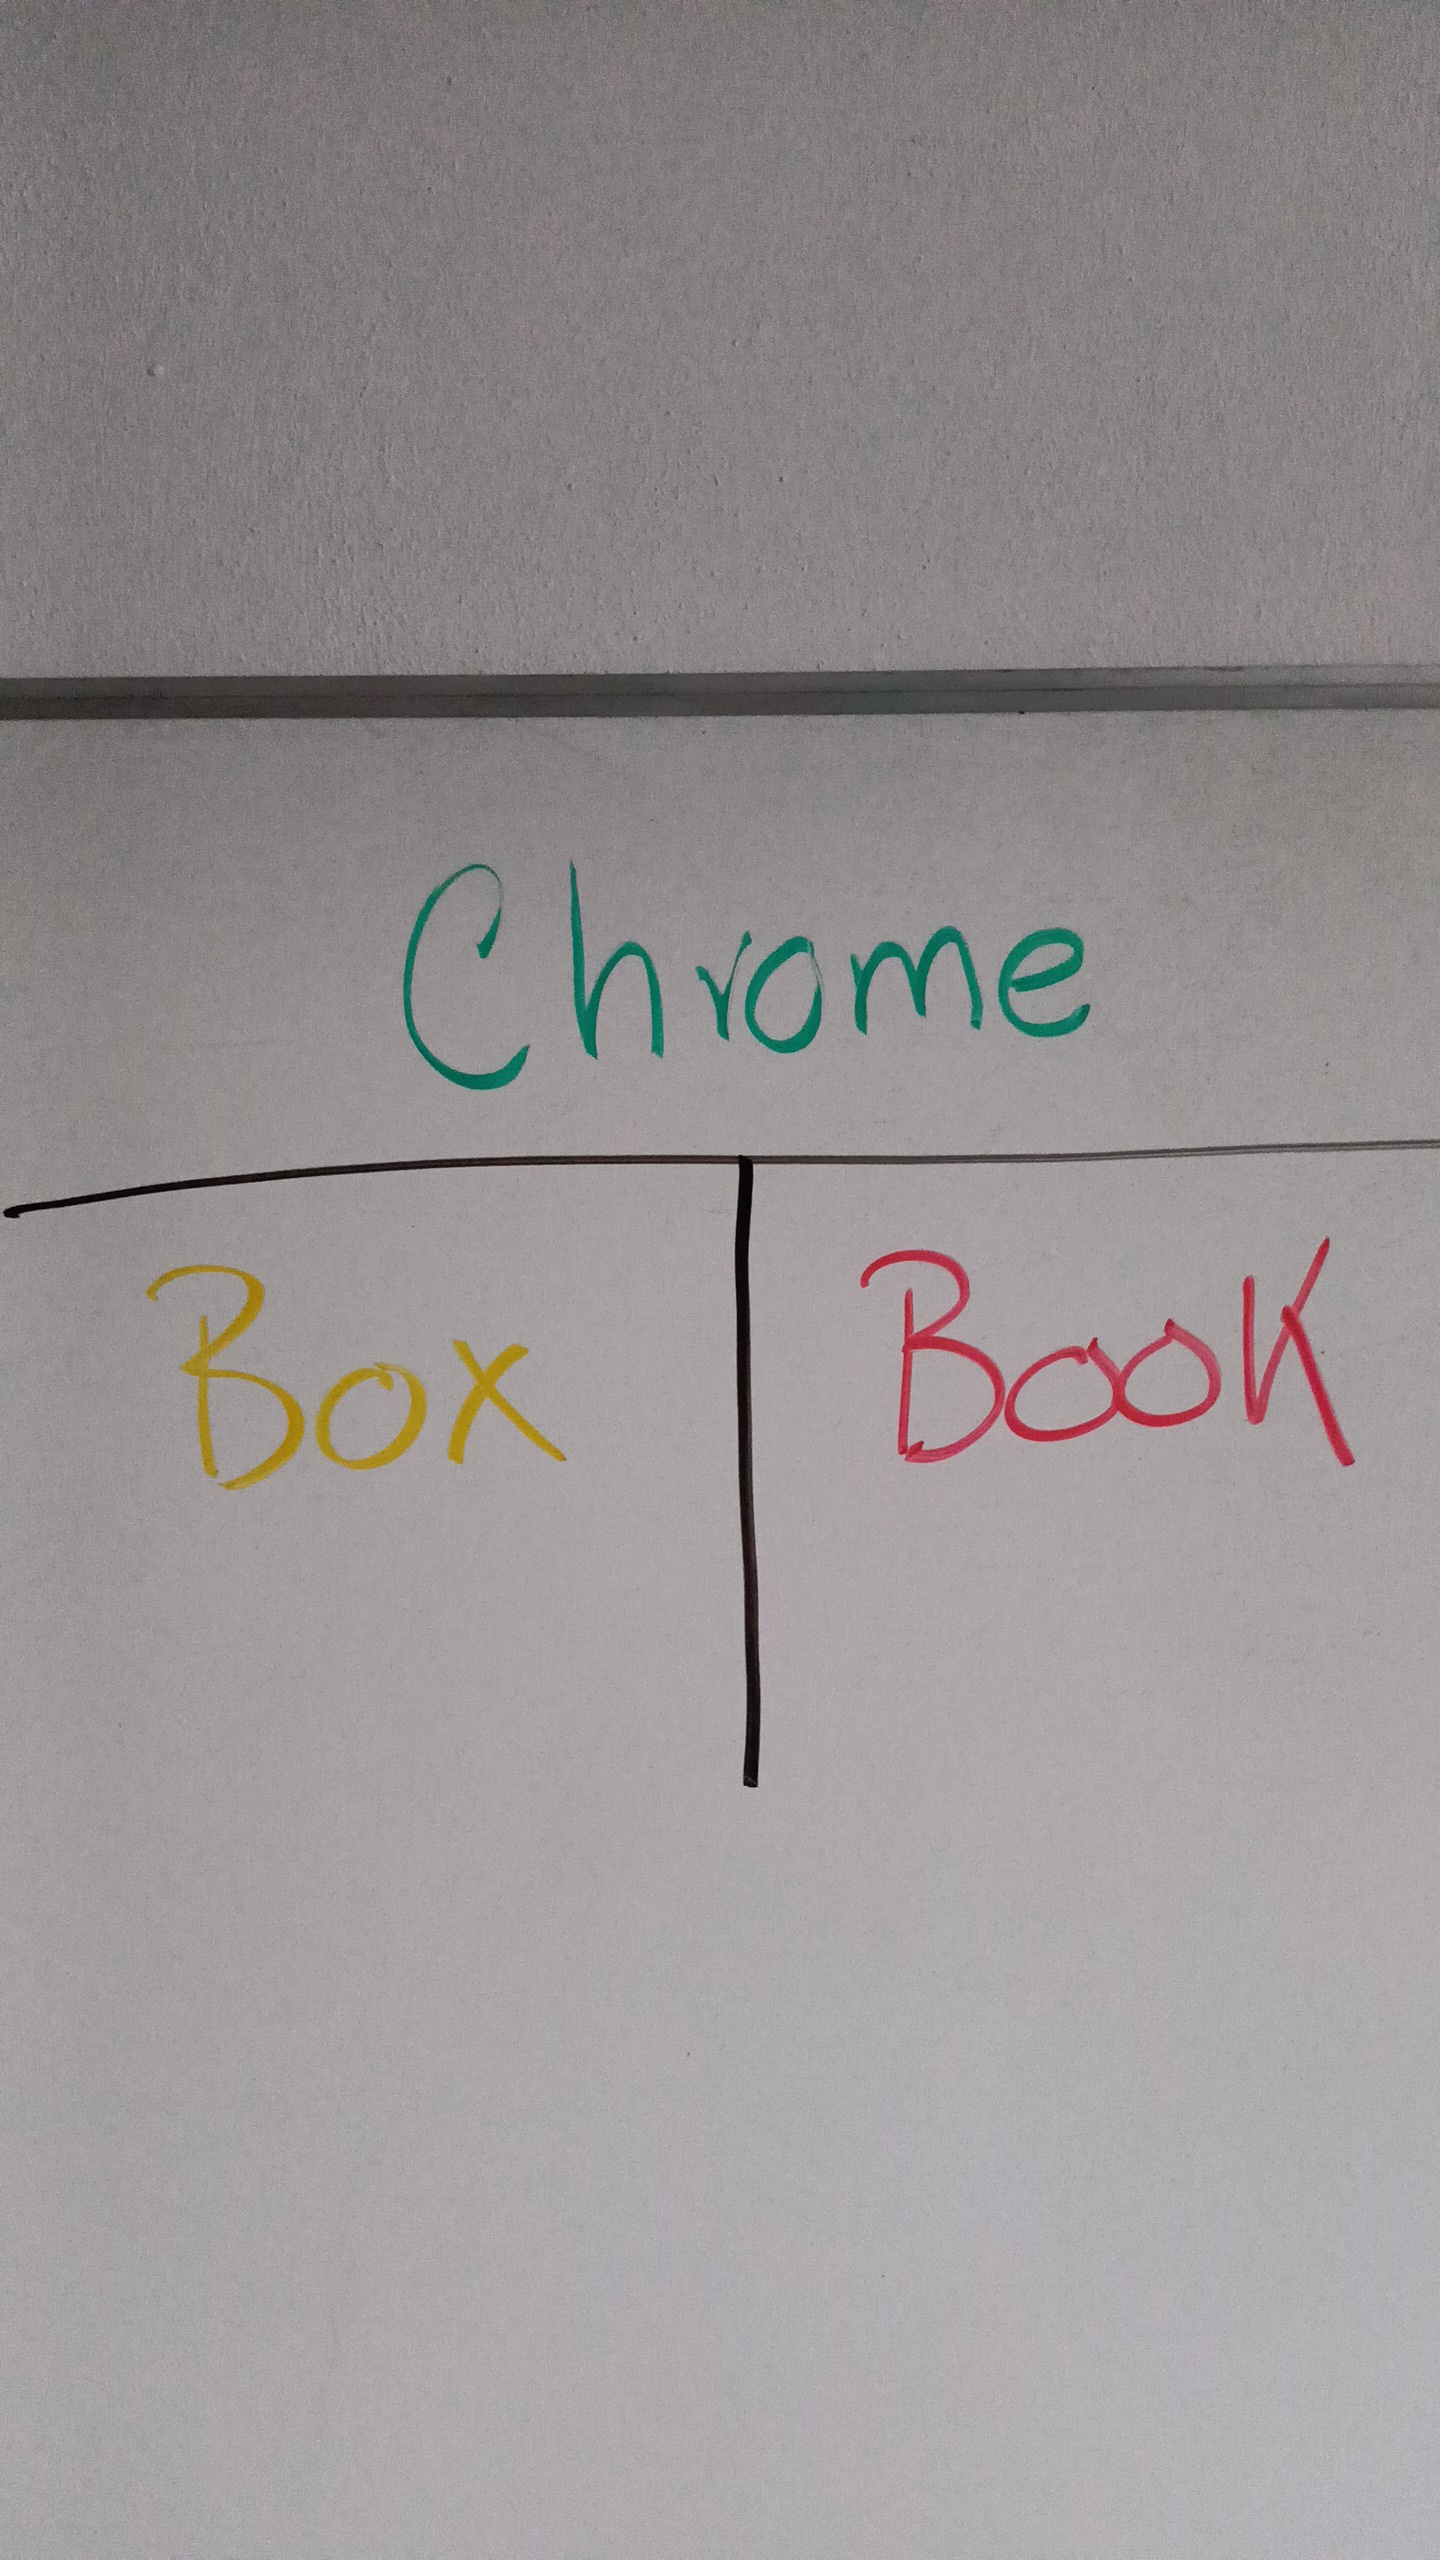 Chrome
Box Book